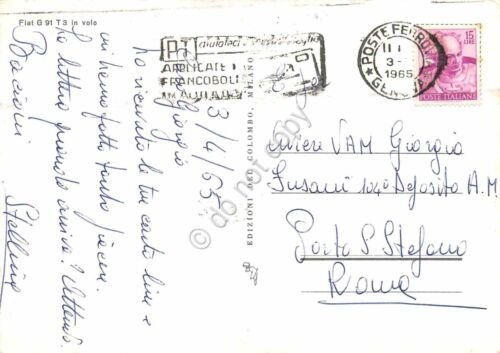 Fiat G 91 T 3 in volo
3/4/65
Caro Giorgio
ho ricevuto le tue cartoline e
mi hanno fatto tanto piacere
la lettera quando arriva?
Bacioni
Stellina
EDIZIONI DEL COLOMBO, MILANO
do not copy
P.T.
aiutateci
APPLICATE I
FRANCOBOLLI
IN ALTO A
POSTE FERROVIA
3-
1965
GENOVA
15
LIRE
POSTE ITALIANE
Aviere VAM Giorgio
Susani 104° Deposito A.M.
Porto S. Stefano
Roma